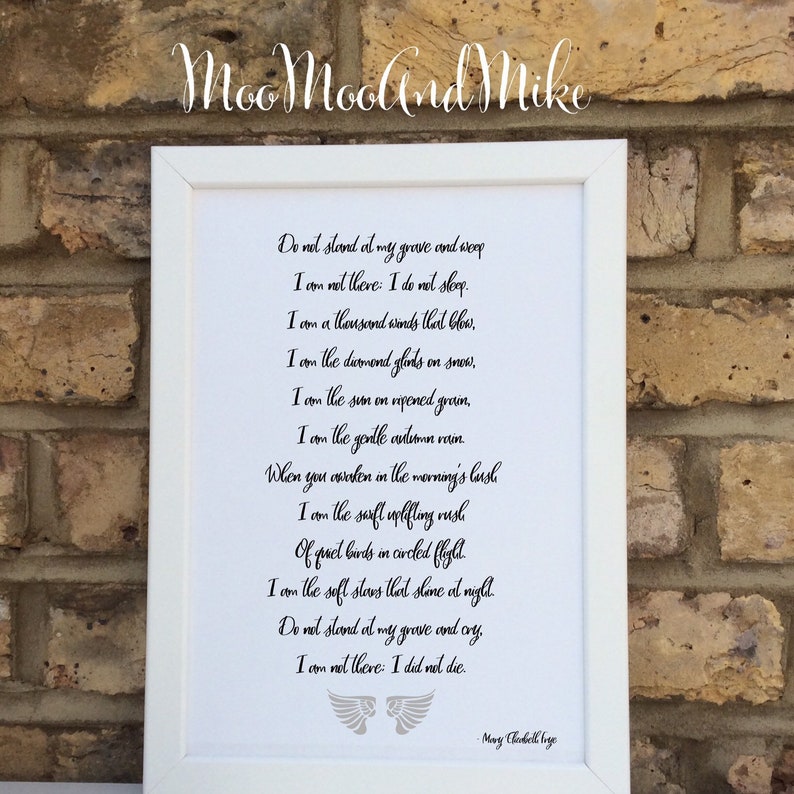 MooMooAndMike
Do not stand at my grave and weep
I am not there; I do not sleep.
I am a thousand winds that blow,
I am the diamond glints on snow,
I am the sun on ripened grain,
I am the gentle autumn rain.
When you awaken in the morning's hush
I am the swift uplifting rush
Of quiet birds in circled flight.
I am the soft stars that shine at night.
Do not stand at my grave and cry,
I am not there; I did not die.
- Mary Elizabeth Frye